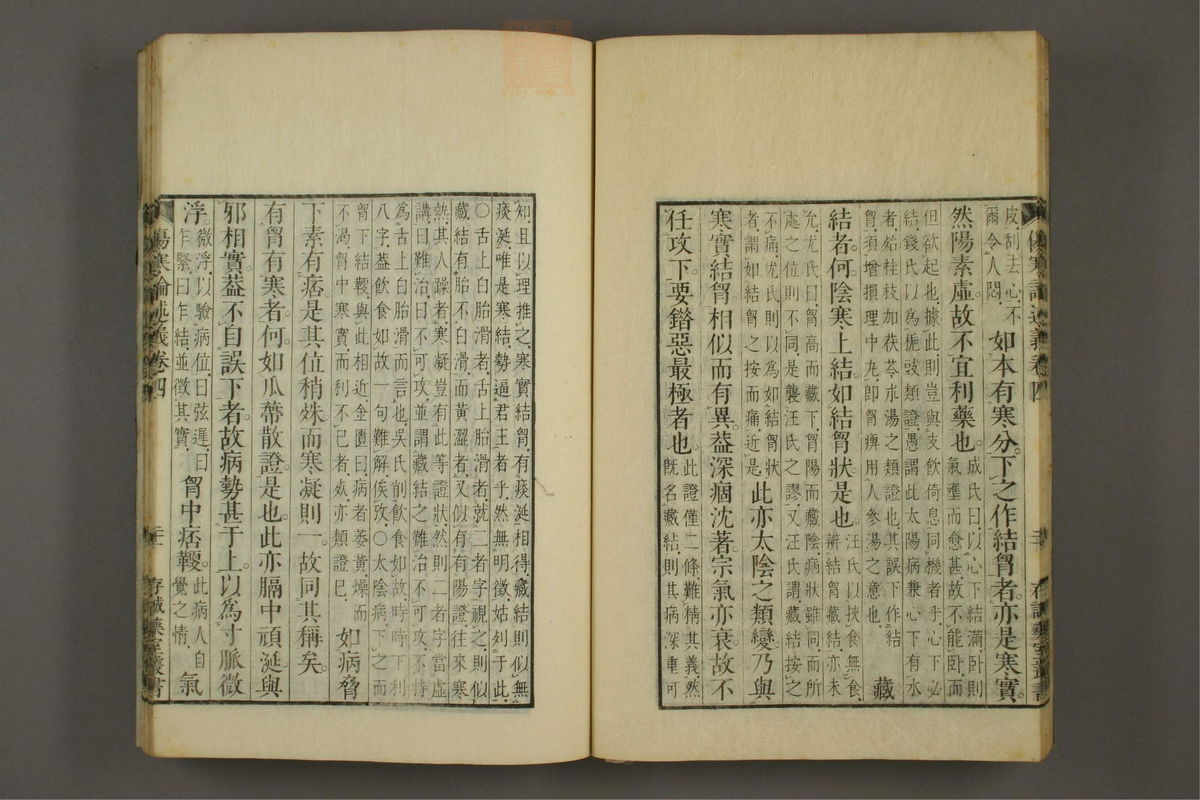 皮、刮去心、不
爾令人悶、
如本有寒分。下之作結胷者。亦是寒實。
然陽素虛。故不宜利藥也。
成氏曰、以心下結滿、臥則
氣壅而愈甚、故不能臥、而
但欲起也、據此則豈與支飲倚息同機者乎、心下必
結、錢氏以為梔豉類證、愚謂此太陽病兼心下有水
者、始桂枝加茯苓朮湯之類證也、其誤下作結
胷、須增損理中丸、即胷痹用人參湯之意也、
藏
結者何。陰寒上結。如結胷狀是也。
汪氏以挾食無食、
辨結胷藏結、亦未
允、尤氏曰、胷高而藏下、胷陽而藏陰、病狀雖同、而所
處之位則不同、是襲汪氏之謬、又汪氏謂、藏結按之
不痛、尤氏則以為如結胷狀
者、謂如結胷之按而痛、近是、
此亦太陰之類變。乃與
寒實結胷相似而有異。葢深痼沈著。宗氣亦衰。故不
任攻下。要錯惡最極者也。
此證僅二條、難精其義、然
既名藏結、則其病深重可
知、且以理推之、寒實結胷、有痰涎相得、藏結則似無
痰涎、唯是寒結、勢逼君主者乎、然無明徵、姑列于此、
○舌上白胎滑者、舌上胎滑者、就二者字視之、則似
藏結有胎不白滑而黃澀者、又似有有陽證、往來寒
熱、其人躁者、寒凝豈有此等證狀、然則二者字當虛
講、曰難治、曰不可攻、並謂藏結之難治不可攻、不特
為舌上白胎滑而言也、吳氏削飲食如故、時時下利
八字、葢飲食如故一句難解、俟攷、○太陰病、下之而
胷下結鞕、與此相近、金匱曰、病者萎黃、燥而
不渴、胷中寒實、而利不止者、死、亦類證已、
如病脅
下素有痞。是其位稍殊而寒凝則一。故同其稱矣。
有胷有寒者。何。如瓜蔕散證。是也。此亦膈中頑涎。與
邪相實。葢不自誤下者。故病勢甚于上。以為寸脈微
浮。
微浮、以驗病位、曰弦遲、曰
乍緊、曰乍結、並徵其實、
胷中痞鞕。
此病人自
覺之情、
氣
傷寒論述義卷四
二十
存誠藥室叢書
傷寒論述義卷四
二十一
存誠藥室叢書